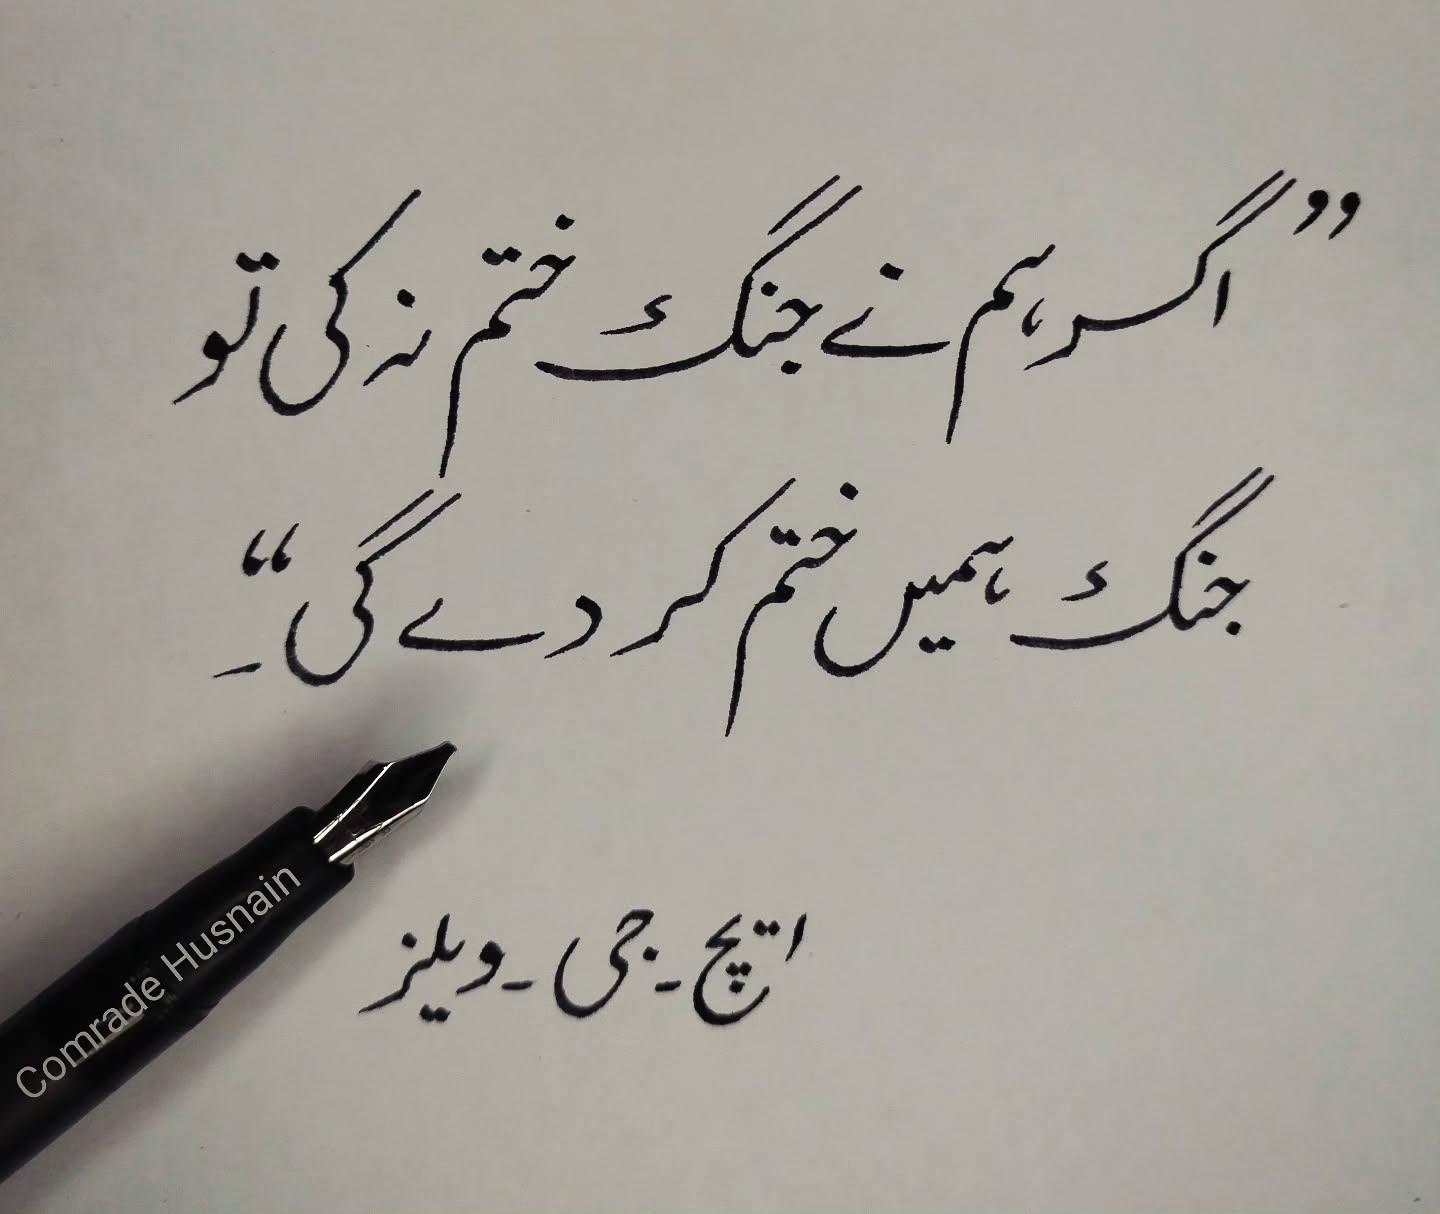 ”اگر ہم نے جنگ ختم نہ کی تو
جنگ ہمیں ختم کر دے گی۔“
ایچ۔جی۔ویلز
Comrade Husnain